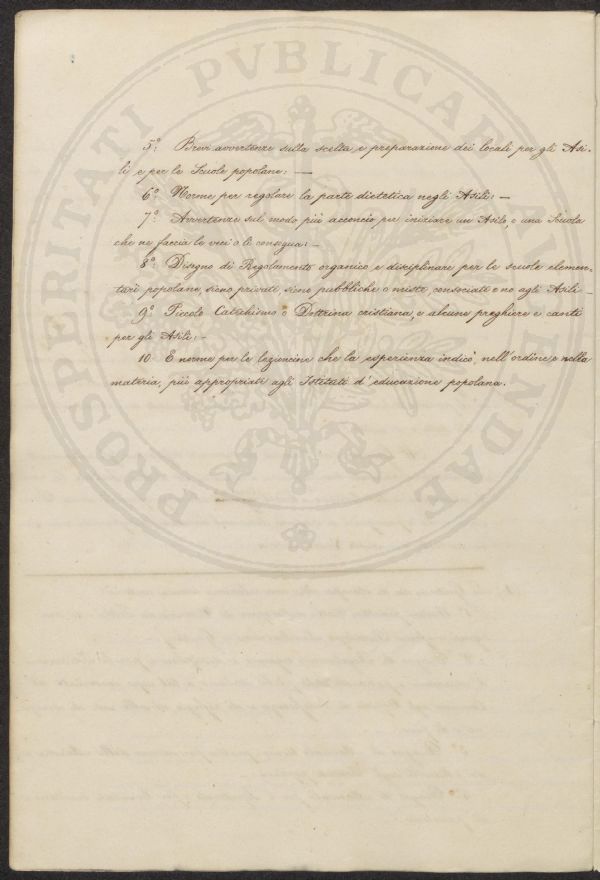 PROSPERITATI PVBLICAE AVGENDAE
5°. Brevi avvertenze sulla scelta, e preparazione dei locali per gli Asi-
li e per le Scuole popolane: —
6°. Norme per regolare la parte dietetica negli Asili: —
7°. Avvertenze sul modo più acconcio per iniziare un Asilo, o una Scuola
che ne faccia le veci o li consegua: —
8°. Disegno di Regolamento organico e disciplinare per le scuole elemen-
tari popolane, sieno privati sieno pubbliche o miste, consociati e no agli Asili —
9°. Piccolo Catechismo o Dottrina cristiana, e alcune preghiere e canti
per gli Asili: —
10. E norme per le lezioncine che la esperienza indicò, nell'ordine e nella
materia, più appropriati agli Istituti d'educazione popolana.